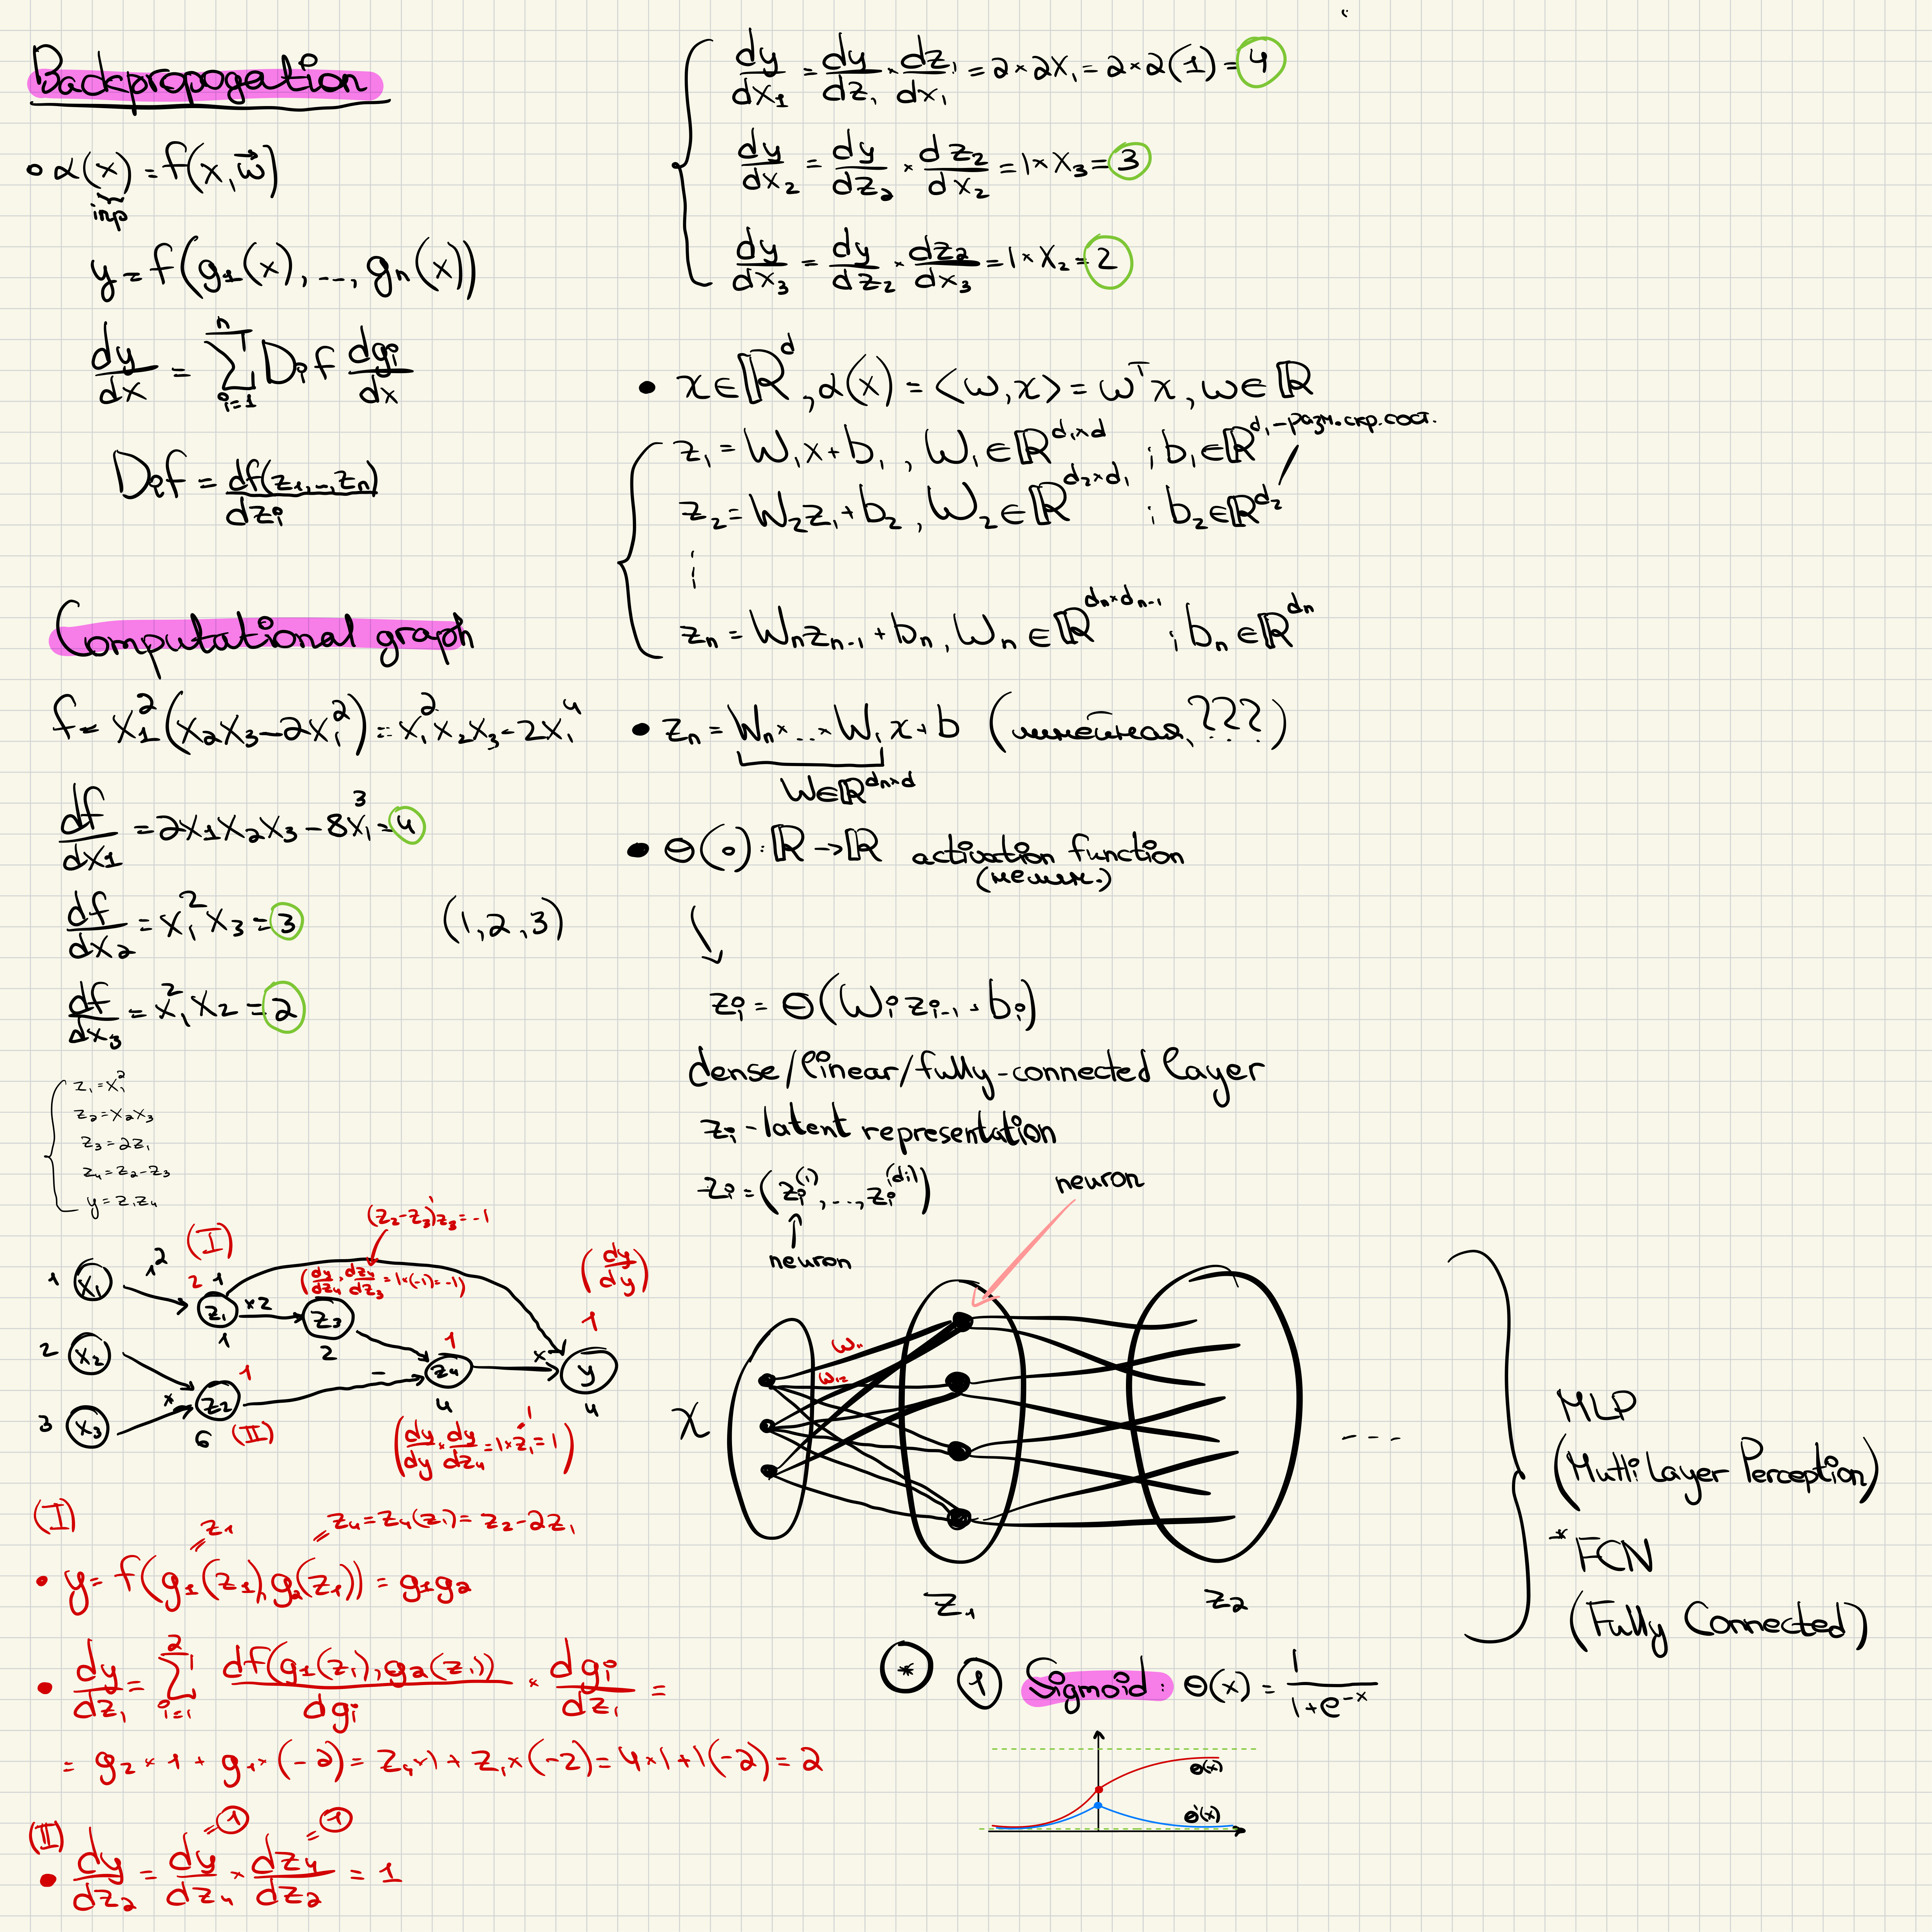 Backpropogation
• α(x) = f(x, w⃗)
inp
y = f(g₁(x), ..., gₙ(x))
dy/dx = Σᵢ₌₁ⁿ Dᵢf dgᵢ/dx
Dᵢf = df(z₁, ..., zₙ)/dzᵢ
Computational graph
f = x₁²(x₂x₃ - 2x₁²) = x₁²x₂x₃ - 2x₁⁴
df/dx₁ = 2x₁x₂x₃ - 8x₁³ = 4
df/dx₂ = x₁²x₃ = 3 (1, 2, 3)
df/dx₃ = x₁²x₂ = 2
z₁ = x₁²
z₂ = x₂x₃
z₃ = 2z₁
z₄ = z₂ - z₃
y = z₁z₄
(z₂ - z₃)'z₃ = -1
(I)
(dy/dz₄ × dz₄/dz₃ = 1×(-1) = -1)
(dy/dy)
1 x₁ 1² 2 1 z₁ 1 ×2 z₃ 2
2 x₂ 1 z₄ 4 × 1 y 4
3 x₃ × 1 z₂ 6 (II) -
(dy/dy × dy/dz₄ = 1 × z₁ = 1)
1
(I)
= z₁ = z₄ = z₄(z₁) = z₂ - 2z₁
• y = f(g₁(z₁), g₂(z₁)) = g₁g₂
• dy/dz₁ = Σᵢ₌₁² df(g₁(z₁), g₂(z₁))/dgᵢ × dgᵢ/dz₁ =
= g₂ × 1 + g₁ × (-2) = z₄×1 + z₁×(-2) = 4×1 + 1(-2) = 2
(II)
= 1 = 1
• dy/dz₂ = dy/dz₄ × dz₄/dz₂ = 1
dy/dx₁ = dy/dz₁ × dz₁/dx₁ = 2 × 2x₁ = 2 × 2(1) = 4
dy/dx₂ = dy/dz₂ × dz₂/dx₂ = 1 × x₃ = 3
dy/dx₃ = dy/dz₂ × dz₂/dx₃ = 1 × x₂ = 2
• x ∈ ℝᵈ, α(x) = <w, x> = wᵀx, w ∈ ℝ
z₁ = W₁x + b₁, W₁ ∈ ℝ^(d₁×d) ; b₁ ∈ ℝ^d₁ - разм. скр. сост.
z₂ = W₂z₁ + b₂, W₂ ∈ ℝ^(d₂×d₁) ; b₂ ∈ ℝ^d₂
⋮
zₙ = Wₙzₙ₋₁ + bₙ, Wₙ ∈ ℝ^(dₙ×dₙ₋₁) ; bₙ ∈ ℝ^dₙ
• zₙ = Wₙ × ... × W₁ x + b (линейная, ???)
W ∈ ℝ^(dₙ×d)
• Θ(∘) : ℝ → ℝ activation function
(нелин.)
zᵢ = Θ(Wᵢ zᵢ₋₁ + bᵢ)
dense/linear/fully-connected layer
zᵢ - latent representation
zᵢ = (zᵢ⁽¹⁾, ..., zᵢ^(dᵢ))
neuron
neuron
w₁₁
w₁₂
x
z₁
z₂
...
MLP
(Mutli Layer Perception)
* FCN
(Fully Connected)
* 1 Sigmoid : Θ(x) = 1/(1+e⁻ˣ)
Θ(x)
Θ'(x)